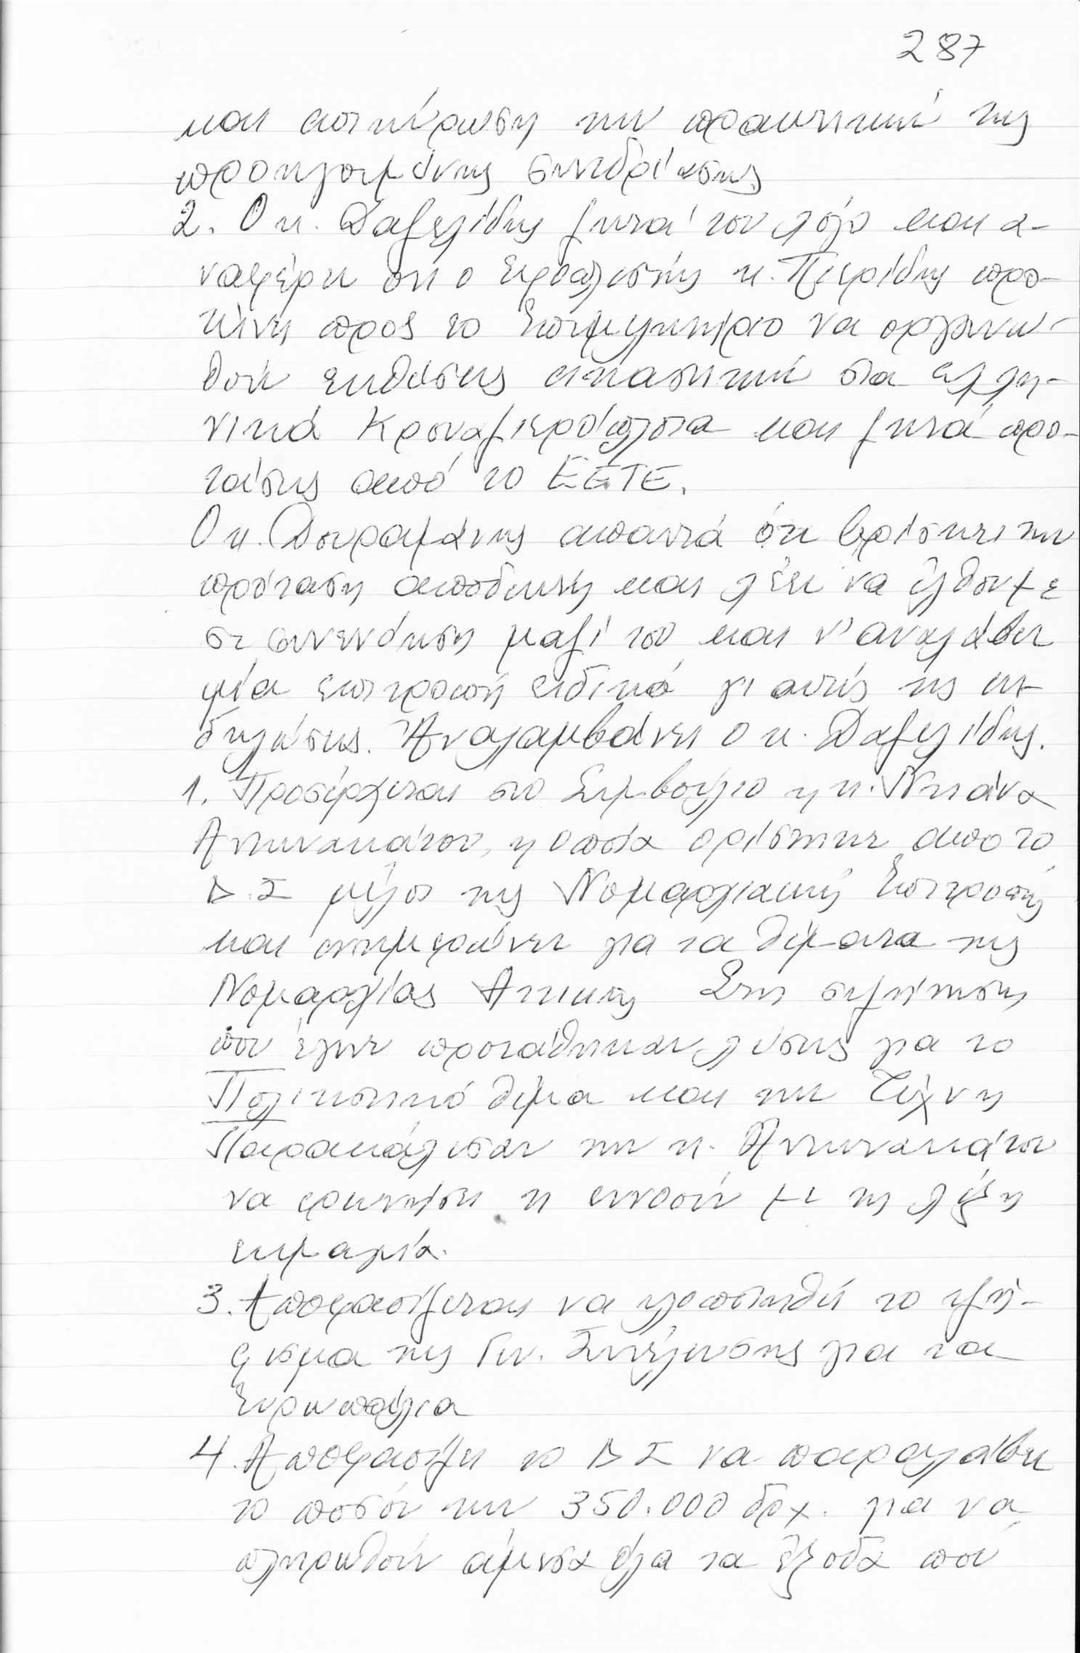 287
και επικύρωση των πρακτικών της
προηγούμενης συνεδρίασης
2. Ο κ. Δαβελίδης ζητά τον λόγο και α-
ναφέρει ότι ο εφοπλιστής κ. Πιερίδης προ-
τείνει προς το Επιμελητήριο να οργανω-
θούν εκθέσεις εικαστικών στα ελλη-
νικά Κρουαζιερόπλοια και ζητά προ-
τάσεις από το ΕΕΤΕ.
Ο κ. απαντά ότι βρίσκει την
πρόταση αποδεκτή και λέει να έλθουμε
σε συνεννόηση μαζί του και ν' αναλάβει
μία επιτροπή ειδικά γι αυτές τις εκ-
δηλώσεις. Αναλαμβάνει ο κ. Δαβελίδης.
1. Προσέρχεται στο Συμβούλιο η κ. Ντιάνα
Αντωνακάτου, η οποία ορίστηκε από το
Δ.Σ μέλος της Νομαρχιακής Επιτροπής
και ενημερώνει για τα θέματα της
Νομαρχίας Αττικής Στη συζήτηση
που έγινε προτάθηκαν λύσεις για το
Πολιτιστικό θέμα και την Τέχνη
Παρακάλεσαν την κ. Αντωνακάτου
να ρωτήσει τι εννοούν με τη λέξη
3. Αποφασίζεται να υλοποιηθεί το ψή-
φισμα της Γεν. Συνέλευσης για τα
Ευρωπάλια
4. Αποφασίζει το Δ Σ να παραλάβει
το ποσόν των 350.000 δρχ. για να
πληρωθούν άμεσα όλα τα έξοδα που